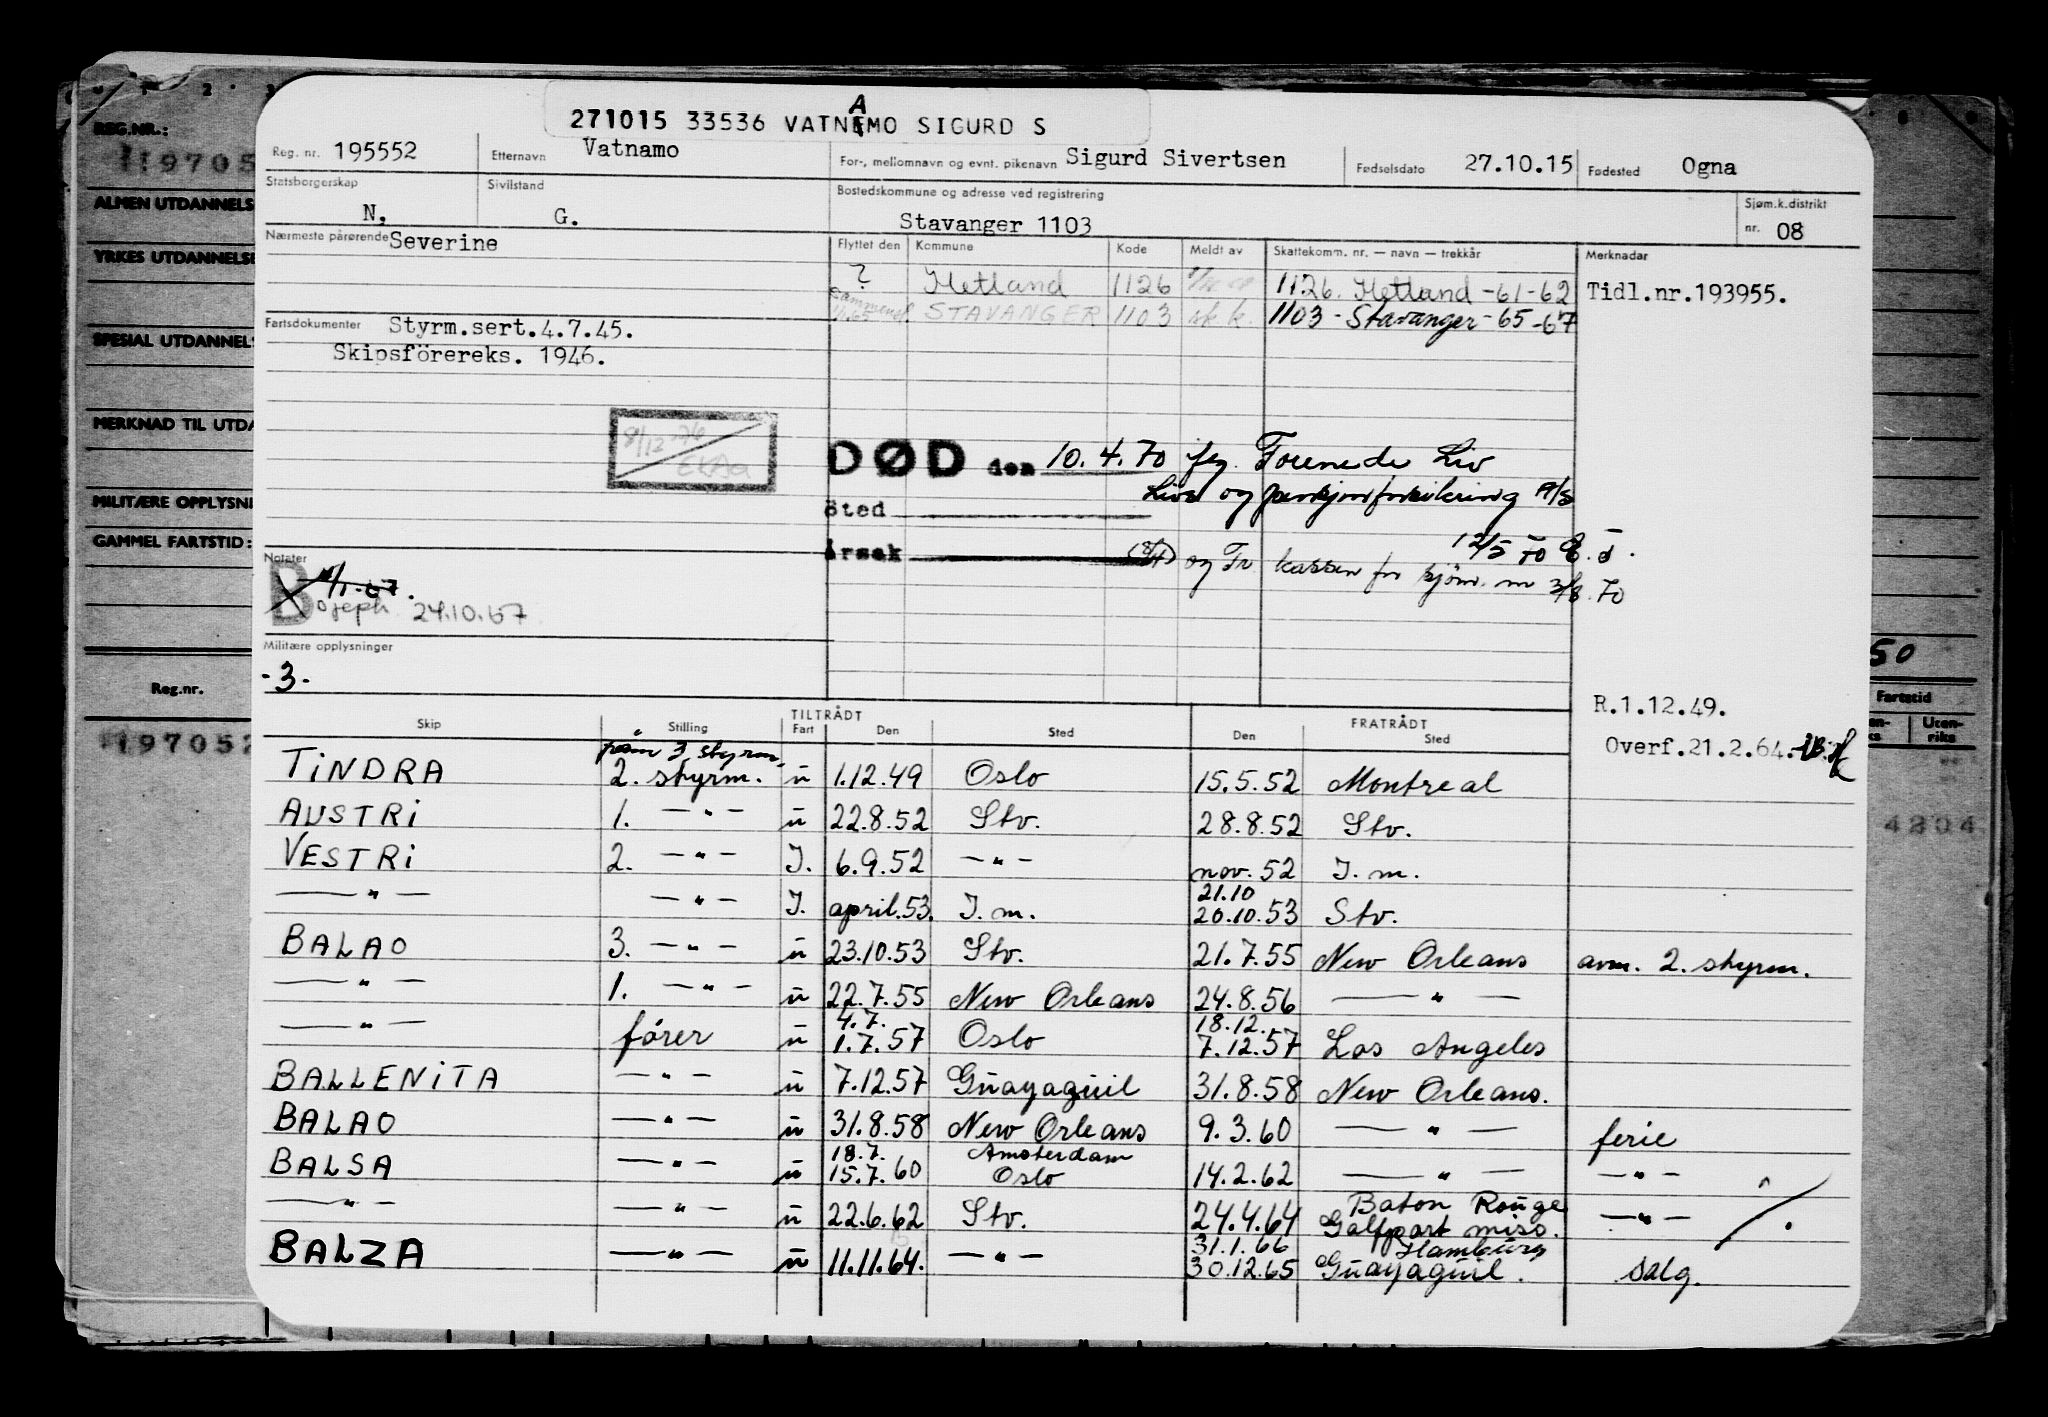 271015 33536 VATNEMO SIGURD S
A
Reg. nr. 195552 Etternavn Vatnamo For-, mellomnavn og evnt. pikenavn Sigurd Sivertsen Fødselsdato 27.10.15 Fødested Ogna
Statsborgerskap N, Sivilstand G. Bostedskommune og adresse ved registrering Stavanger 1103 Sjøm.k.distrikt nr. 08
Nærmeste pårørende Severine
Flyttet den Kommune Kode Meldt av Skattekomm. nr. — navn — trekkår Merknadar
? Hetland 1126 1126. Hetland -61-62 Tidl.nr.193955.
STAVANGER 1103 1103 - Stavanger - 65 - 67
Fartsdokumenter Styrm.sert.4.7.45.
Skipsförereks. 1946.
DØD den 10.4.70 Forenede Liv
Livs og A/S
Sted
Årsak
12/5 70
og Tr kassen for sjöm. 3/8. 70
Notater
B
11/1-67.
24.10.67
Militære opplysninger
-3.
R.1.12.49.
Overf.21.2.64.
Skip Stilling TILTRÅDT Fart Den Sted FRATRÅDT Den Sted
3 styrm.
TINDRA 2. styrm. u 1.12.49 Oslo 15.5.52 Montreal
AUSTRI 1. —"— u 22.8.52 Stv. 28.8.52 Stv.
VESTRI 2. —"— I. 6.9.52 —"— nov. 52 I.m.
21.10
—"— —"— I. april.53. I.m. 20.10.53 Stv.
BALAO 3. —"— u 23.10.53 Stv. 21.7.55 New Orleans avm. 2. styrm.
—"— 1. —"— u 22.7.55 New Orleans 24.8.56 —"—
4.7. 18.12.
—"— fører u 1.7.57 Oslo 7.12.57 Los Angeles
BALLENITA —"— u 7.12.57 Guayaquil 31.8.58 New Orleans.
BALAO —"— u 31.8.58 New Orleans 9.3.60 —"— ferie
18.7. Amsterdam
BALSA —"— u 15.7.60 Oslo 14.2.62 —"— —"—
Baton Rouge
—"— —"— u 22.6.62 Stv. 24.4.64 Galfport miss. —"—
31.1.66 Hamburg
BALZA —"— u 11.11.64. —"— 30.12.65 Guayaquil. salg.
REG.NR.:
19705
ALMEN UTDANNELS
YRKES UTDANNELSE
SPESIAL UTDANNELS
MERKNAD TIL UTDA
MILITÆRE OPPLYSNI
GAMMEL FARTSTID:
Reg.nr.
197052
50
Fartstid
Uten-
riks
4804